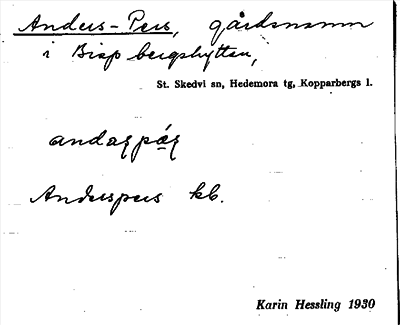 Anders-Pers, gårdsnamn
i Bispbergshyttan,
St. Skedvi sn, Hedemora tg, Kopparbergs l.
Anderspers kb.
Karin Hessling 1930